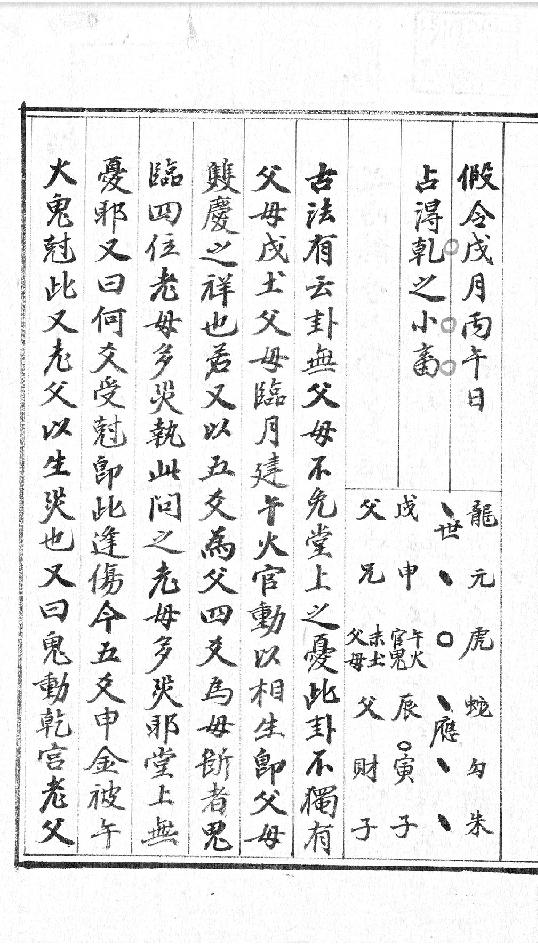 假令戌月丙午日
占淂乾之小畜
龍元虎蛇勾朱
世應
戌申午火官鬼辰寅子
父兄未土父母父財子
古法有云卦無父母不免堂上之憂此卦不獨有
父母戌土父母臨月建午火官動以相生即父母
雙慶之祥也若又以五爻為父四爻為母斷者鬼
臨四位老母多災執此問之老母多災耶堂上無
憂耶又曰何爻受尅即此逢傷今五爻申金被午
火鬼尅此又老父以生災也又曰鬼動乾宮老父